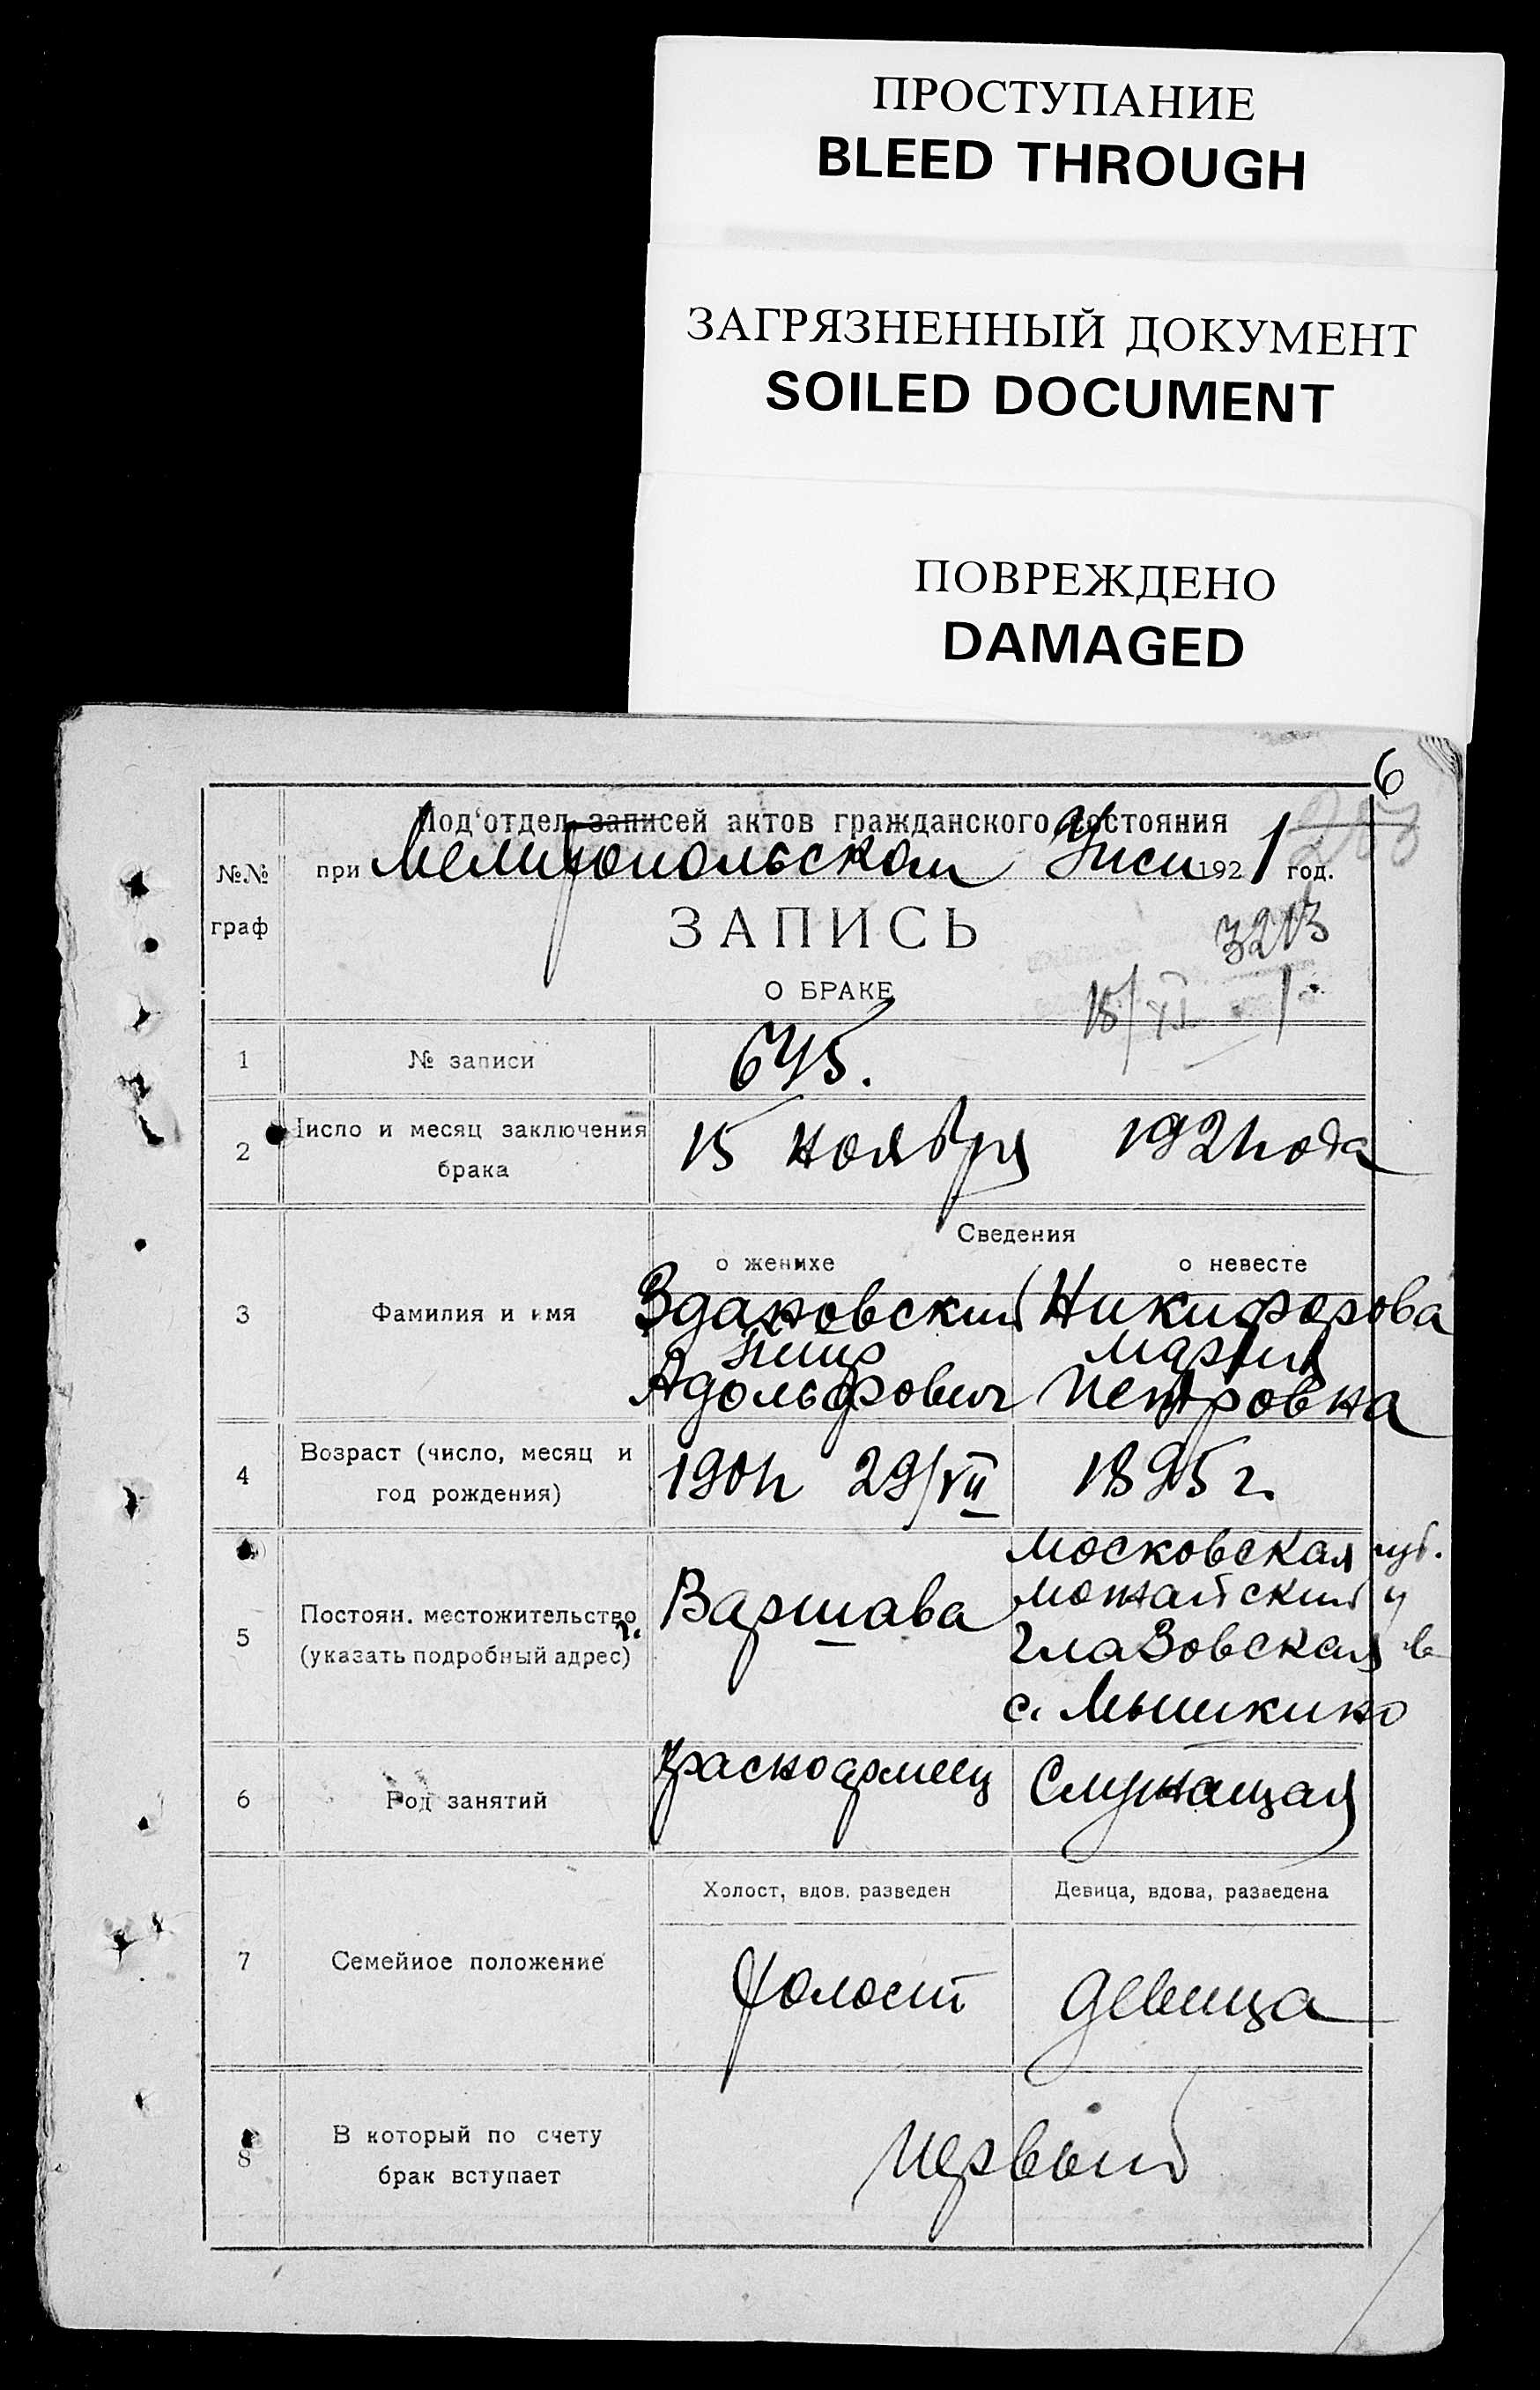 ПРОСТУПАНИЕ
BLEED THROUGH
ЗАГРЯЗНЕННЫЙ ДОКУМЕНТ
SOILED DOCUMENT
ПОВРЕЖДЕНО
DAMAGED
6
Под'отдел записей актов гражданского состояния
№№ граф
при Мелитопольском Уиси 1921 год.
ЗАПИСЬ
3213
О БРАКЕ
15/XI
1 № записи 645.
2 Число и месяц заключения брака 15 ноября 1921 года
Сведения
о женихе о невесте
3 Фамилия и имя
Здановский Никифорова
Мария
Адольфович Петровна
4 Возраст (число, месяц и год рождения) 1901г 29/VII 1895 г.
5 Постоян. местожительство (указать подробный адрес)
г. Варшава
Московская губ.
Можайский у
Глазовская в
с. Мышкино
6 Род занятий Красноармеец Служащая
Холост, вдов. разведен Девица, вдова, разведена
7 Семейное положение Холост девица
8 В который по счету брак вступает первый